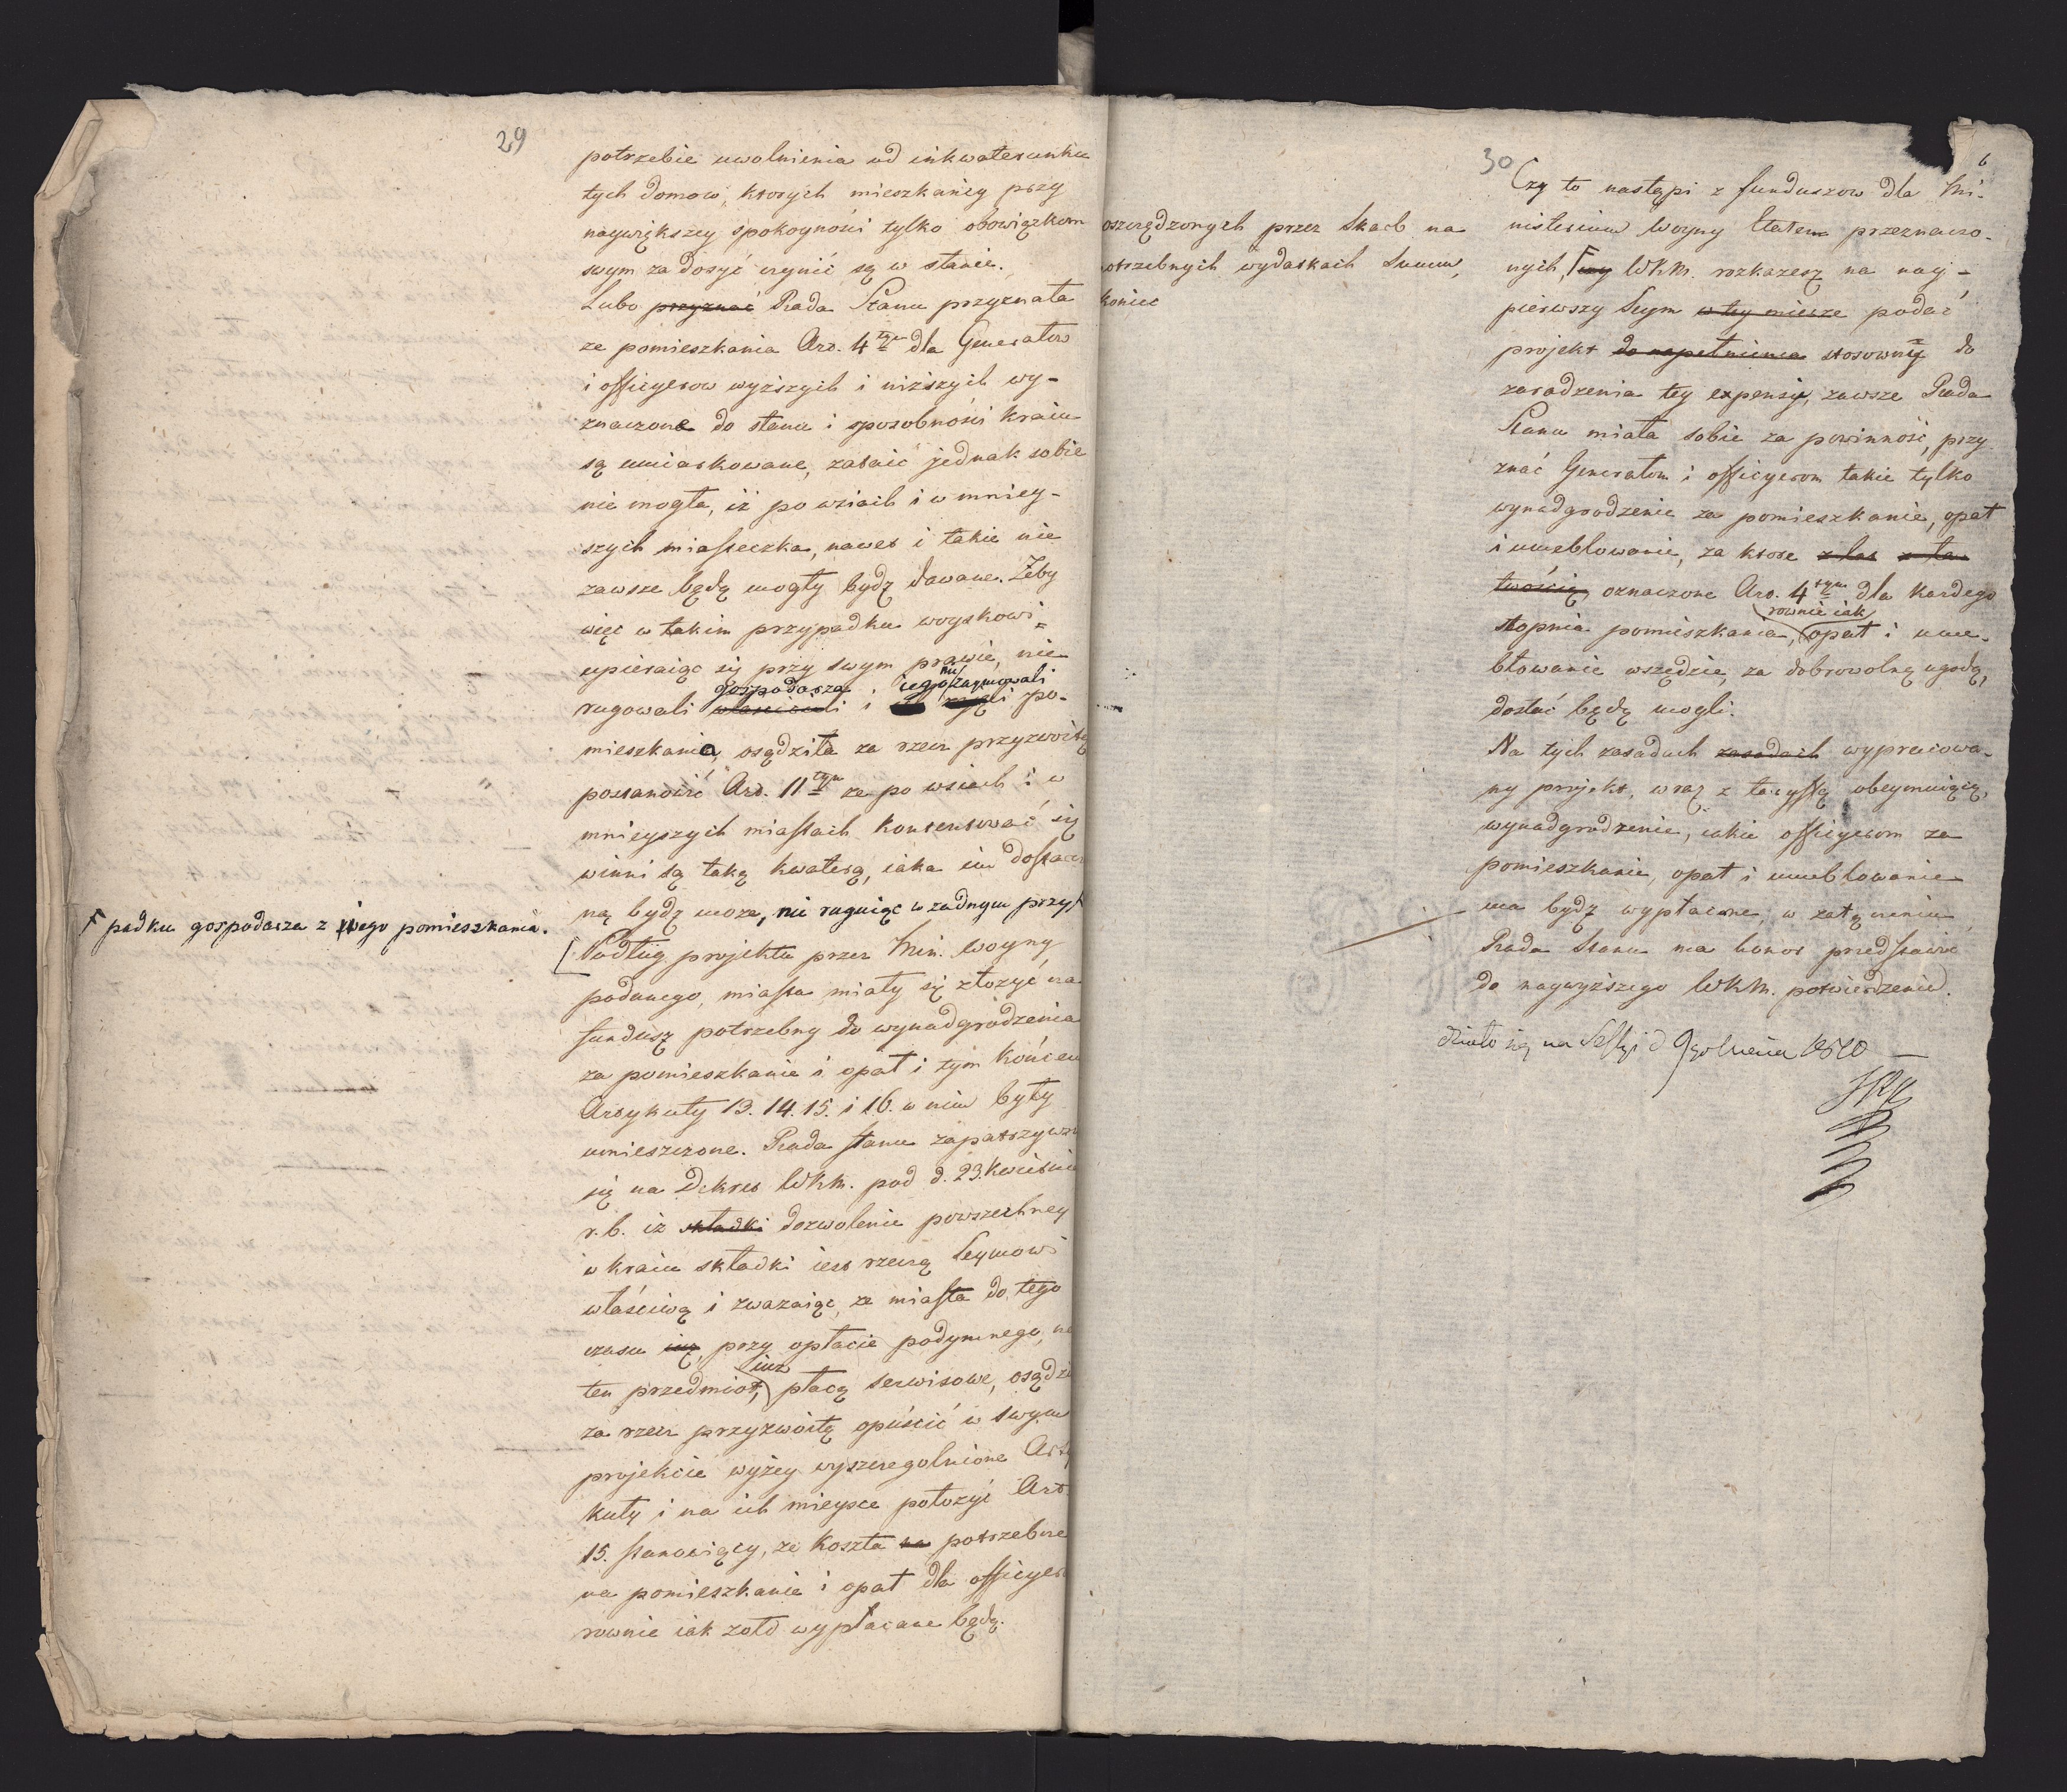 29
potrzebie uwolnienia od inkwaterunku
tych domow, ktorych mieszkańcy przy
naywiększey spokoyności tylko obowiązkom
swym zadosyć czynić są w stanie.
Lubo przyznać Rada Stanu przyznała
ze pomieszkania Art. 4tym dla Generałow
i officyerow wyższych i niższych wy-
znaczone do stanu i sposobności kraiu
są umiarkowane, zataić jednak sobie
nie mogła, iż po wsiach i w mniey-
szych miasteczka, nawet i takie nie
zawsze będą mogły bydz dawane. Żeby
więc w takim przypadku woyskowi
upieraiąc się przy swym prawie, nie
gospodarza iego zaymowali
rugowali właścicieli i po-
mieszkania, osądziła za rzecz przyzwoitą
postanowić Art. 11tym ze po wsiach i w
mnieyszych miastach kontentować się
winni są taką kwaterą, iaka im dostarczo
ną bydz może, nie rugując w zadnym przy
F padku gospodarza z iego pomieszkania.
Podług projektu przez Min. Woyny
podanego, miasta miały się złożyć na
fundusz potrzebny do wynadgrodzenia
za pomieszkanie i opał i tym końcem
Artykuły 13. 14. 15. i 16. w nim były
umieszczone. Rada stanu zapatrzywszy
się na Dekret WKM. pod d. 23. Kwietnia
r. b. iż składki dozwolenie powszechney
w kraiu składki iest rzeczą Seymowi
właściwą i zwazaiąc, ze miasta do tego
czasu się, przy opłacie podymnego, na
iuz
ten przedmiot, płacą serwisowe, osądzi
za rzecz przyzwoitą opuścić w swym
projekcie wyżey wyszczegolnione Arty
kuły i na ich mieysce położyć Art.
15. stanowiący, ze koszta na potrzebne
na pomieszkanie i opał dla officyer
rownie iak zołd wypłacane będą.
30
6
Czy to nastąpi z funduszow dla Mi-
nisterium Woyny Etatem przeznaczo-
nych, F czy WKM. rozkazesz na nay-
pierwszy Seym w tey mierze podać
projekt do napełnienia stosowny do
zaradzenia tey expensy, zawsze Rada
Stanu miała sobie za powinność, przy
znać Generałom i officyerom takie tylko
wynadgrodzenie za pomieszkanie, opał
i umeblowanie, za ktore z łat z ła
twością oznaczone Art. 4tym dla kazdego
rownie iak
stopnia pomieszkania, opał i ume-
blowanie wszędzie, za dobrowolną ugodą,
dostać będą mogli.
Na tych zasadach zasadach wypracowa-
ny projekt, wraz z taryffą obeymuiącą,
wynadgrodzenie, iakie officyerom za
pomieszkanie, opał i umeblowanie
ma bydz wypłacone, w załączeniu
Rada Stanu ma honor przedstawić
do naywyższego WKM. potwierdzenia.
Działo się na Sessyi d 9 1810
oszczędzonych przez Skarb na
otrzebnych wydatkach Summ,
koniec